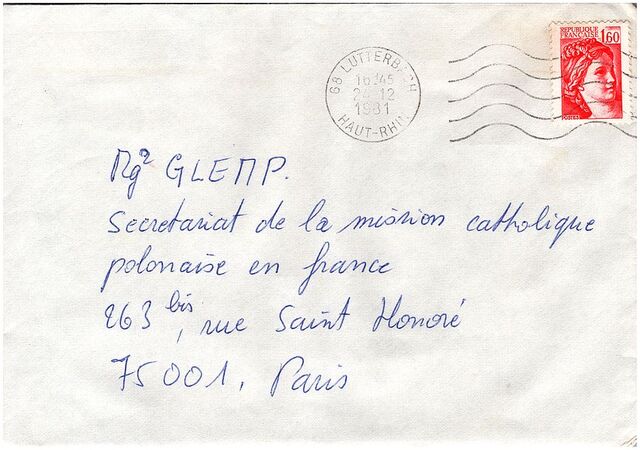 REPUBLIQUE
FRANÇAISE 1,60
68 LUTTERBACH
16H45
24-12
1981
HAUT-RHIN
Mgr GLEMP.
Secretariat de la mission catholique
polonaise en france
263 bis, rue Saint Honoré
75001, Paris